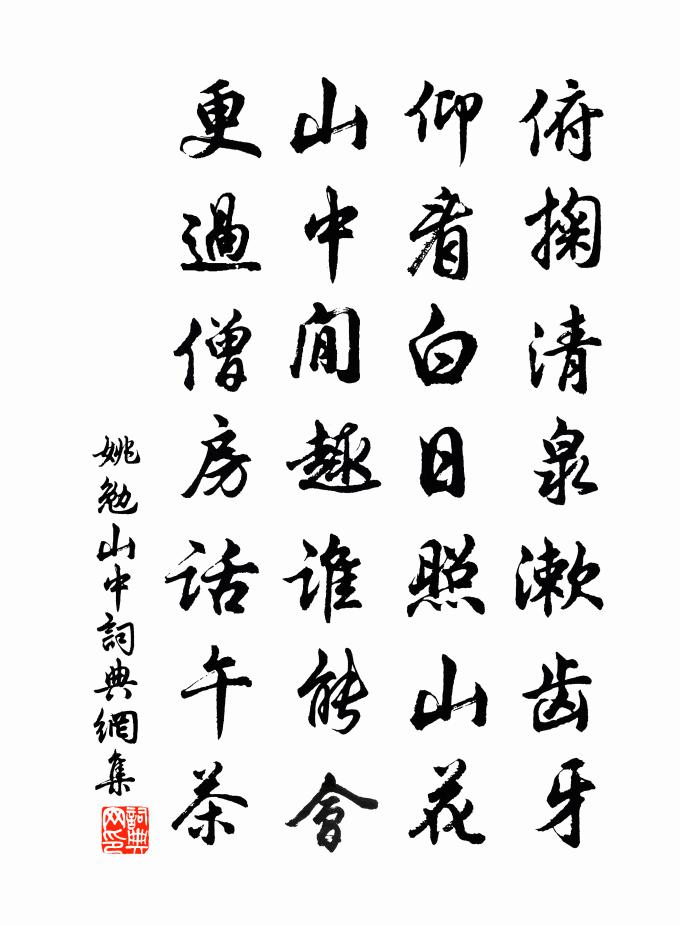 俯掬清泉漱齿牙
仰看白日照山花
山中閒趣谁能會
更過僧房话午茶
姚勉山中詞典網集
詞典
网印